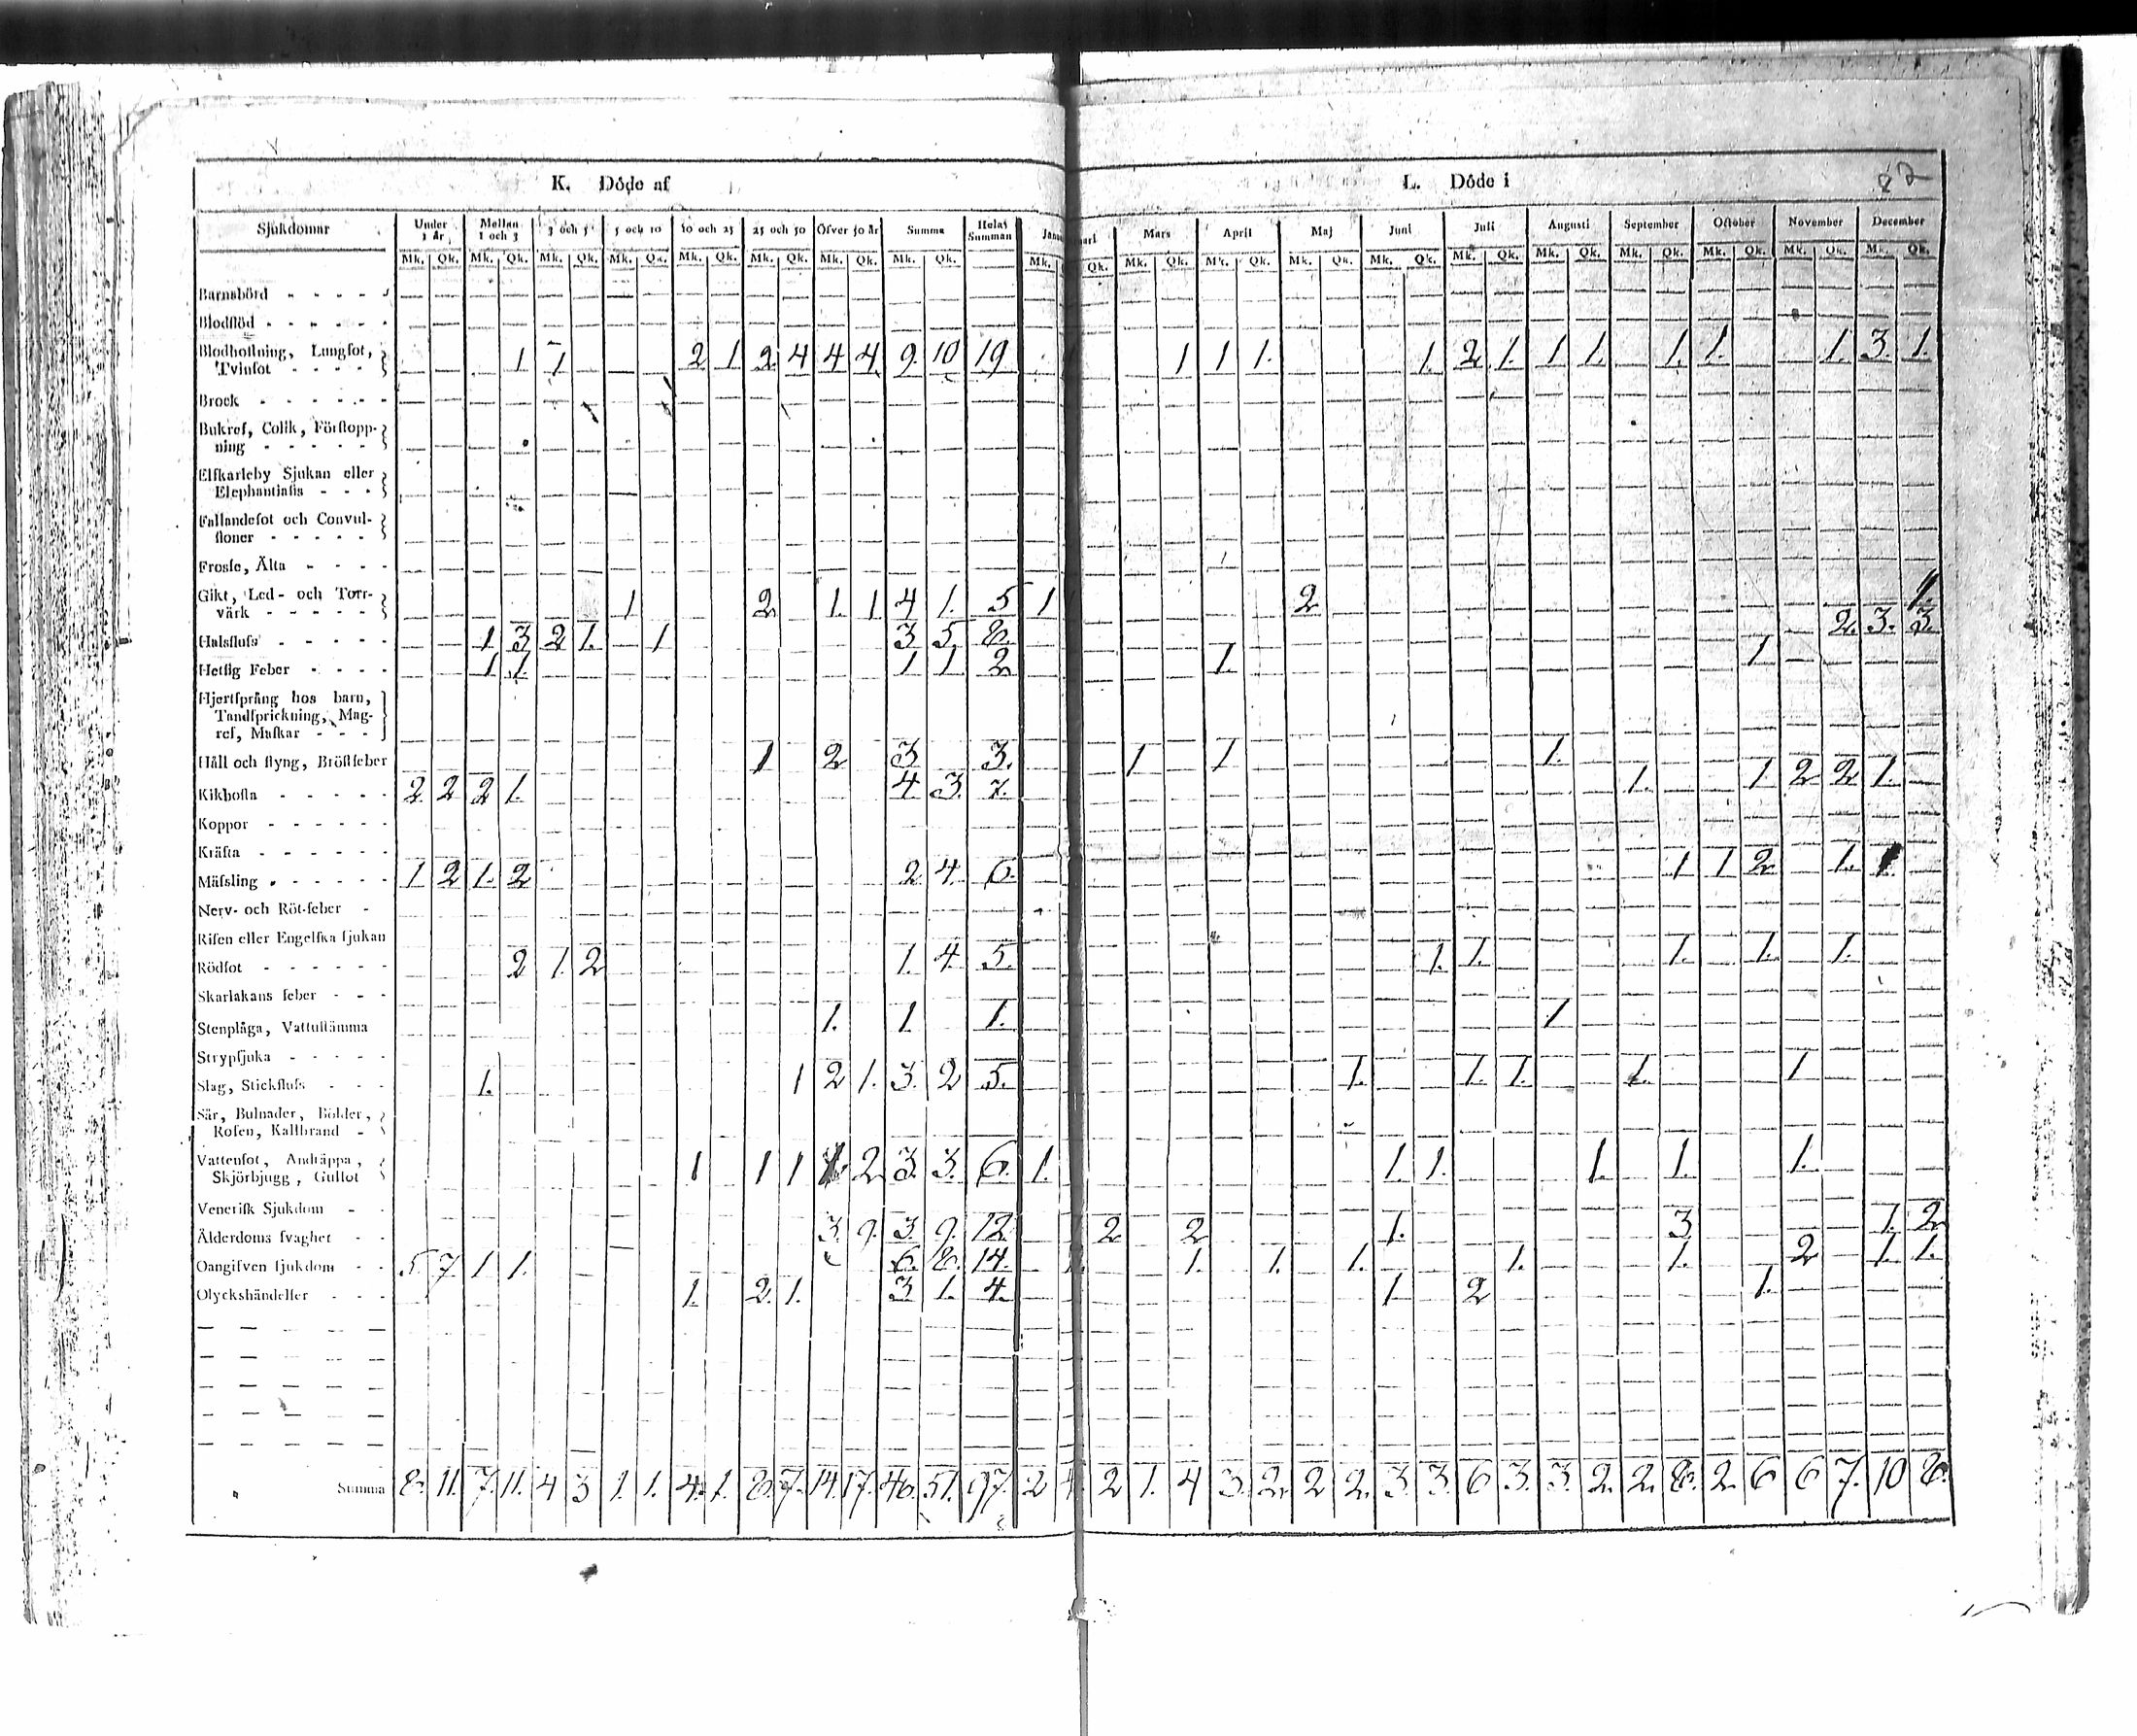 K. Döde af
L. Döde i
82
Sjukdomar Under 1 år Mellan 1 och 3 3 och 5 5 och 10 10 och 25 25 och 50 Öfver 50 år Summa Hela Summan Mars April Maj Juni Juli Augusti September October November December
Mk. Qk. Mk. Qk. Mk. Qk. Mk. Qk. Mk. Qk. Mk. Qk. Mk. Qk. Mk. Qk. Mk. Qk. Mk. Qk. Mk. Qk. Mk. Qk. Mk. Qk. Mk. Qk. Mk. Qk. Mk. Qk. Mk. Qk. Mk. Qk. Mk. Qk.
Barnsbörd - - - -
Blodflöd - - - - -
Blodhoſtning, Lungſot,
Tvinſot - - - - 1 1 2 1 2 4 4 4 9. 10 19 1 1 1. 1. 2 1. 1 1. 1. 1. 1. 3. 1.
Brock - - - - - -
Bukref, Colik, Förſtopp-
ning - - - - -
Elfkarleby Sjukan eller
Elephantiaſis - - -
Fallandeſot och Convul-
ſioner - - - - -
Froſſe, Älta - - - -
Gikt, Led- och Torr-
värk - - - - - 1 2 1. 1 4 1. 5 1 2 1.
Halsfluſs - - - - - 1 3 2 1. 1 3 5 8. 2. 3. 3.
Hetſig Feber - - - - 1 1. 1 1 2 1. 1
Hjertſprång hos barn,
Tandſprickning, Mag-
ref, Maſkar - - -
Håll och ſtyng, Bröſtfeber 1 2 3 3. 1 1 1.
Kikhoſta - - - - - 2 2 2 1. 4 3. 7. 1. 1 2 2 1.
Koppor - - - - - -
Kräfta - - - - - -
Mäſsling - - - - - 1 2 1. 2 2 4. 6. 1 1 2 1. 1
Nerv- och Röt-feber -
Riſen eller Engelſka ſjukan
Rödſot - - - - - - 2 1. 2 1. 4. 5. 1. 1. 1. 1. 1.
Skarlakans feber - - -
Stenplåga, Vattuſtämma 1. 1. 1. 1
Strypſjuka - - - - -
Slag, Stickfluſs - - - 1. 1 2 1. 3. 2 5. 1. 1. 1. 1. 1
Sår, Bulnader, Bölder,
Roſen, Kallbrand -
Vattenſot, Andtäppa,
Skjörbjugg, Gulſot 1 1 1 1. 2 3. 3. 6. 1. 1. 1. 1. 1. 1.
Veneriſk Sjukdom - -
Ålderdoms ſvaghet - - 3. 9. 3. 9. 12 2 2 1. 3 1. 2
Oangifven ſjukdom - - 5. 7. 1 1. 6. 8. 14. 1. 1. 1. 1. 1. 2 1. 1.
Olyckshändelſer - - - 1. 2. 1. 3 1. 4. 1 2 1.
Summa 8. 11. 7. 11. 4 3 1. 1. 4. 1. 8. 7. 14. 17. 46. 51. 97. 2 4 2 1. 4 3. 2. 2 2. 3. 3. 6 3. 3. 2. 2. 8. 2. 6 6 7. 10 8.